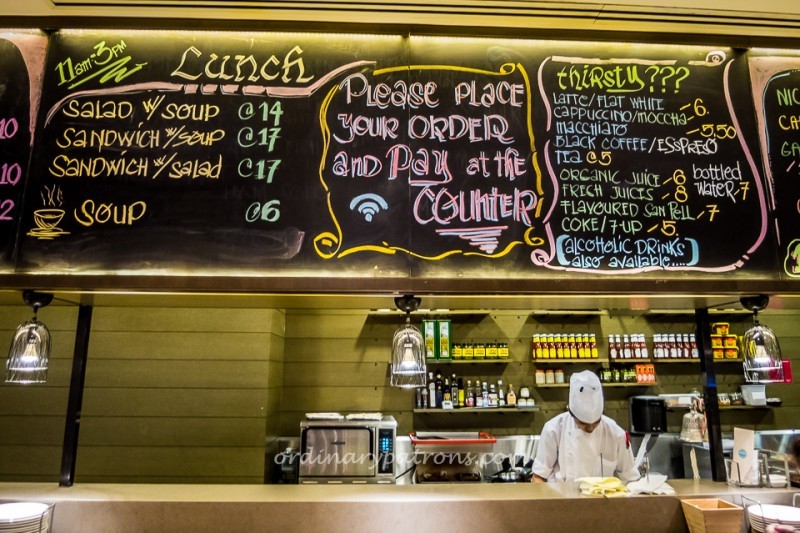 10
10
2
11am-3pm
Lunch
Salad w/ Soup @ 14
Sandwich w/ Soup @ 17
Sandwich w/ Salad @ 17
Soup @ 6
Please place
your order
and Pay at the
Counter
thirsty???
Latte/Flat White
Cappuccino/moccha - 6.
macchiato - 5,50
Black Coffee/Esspreso
Tea @ 5
Organic Juice - 6
Fresh Juices - 8
Flavoured San Pell - 7
Coke/7-up - 5.
bottled
water - 7
(alcoholic drinks
also available.....)
ordinarypatrons.com